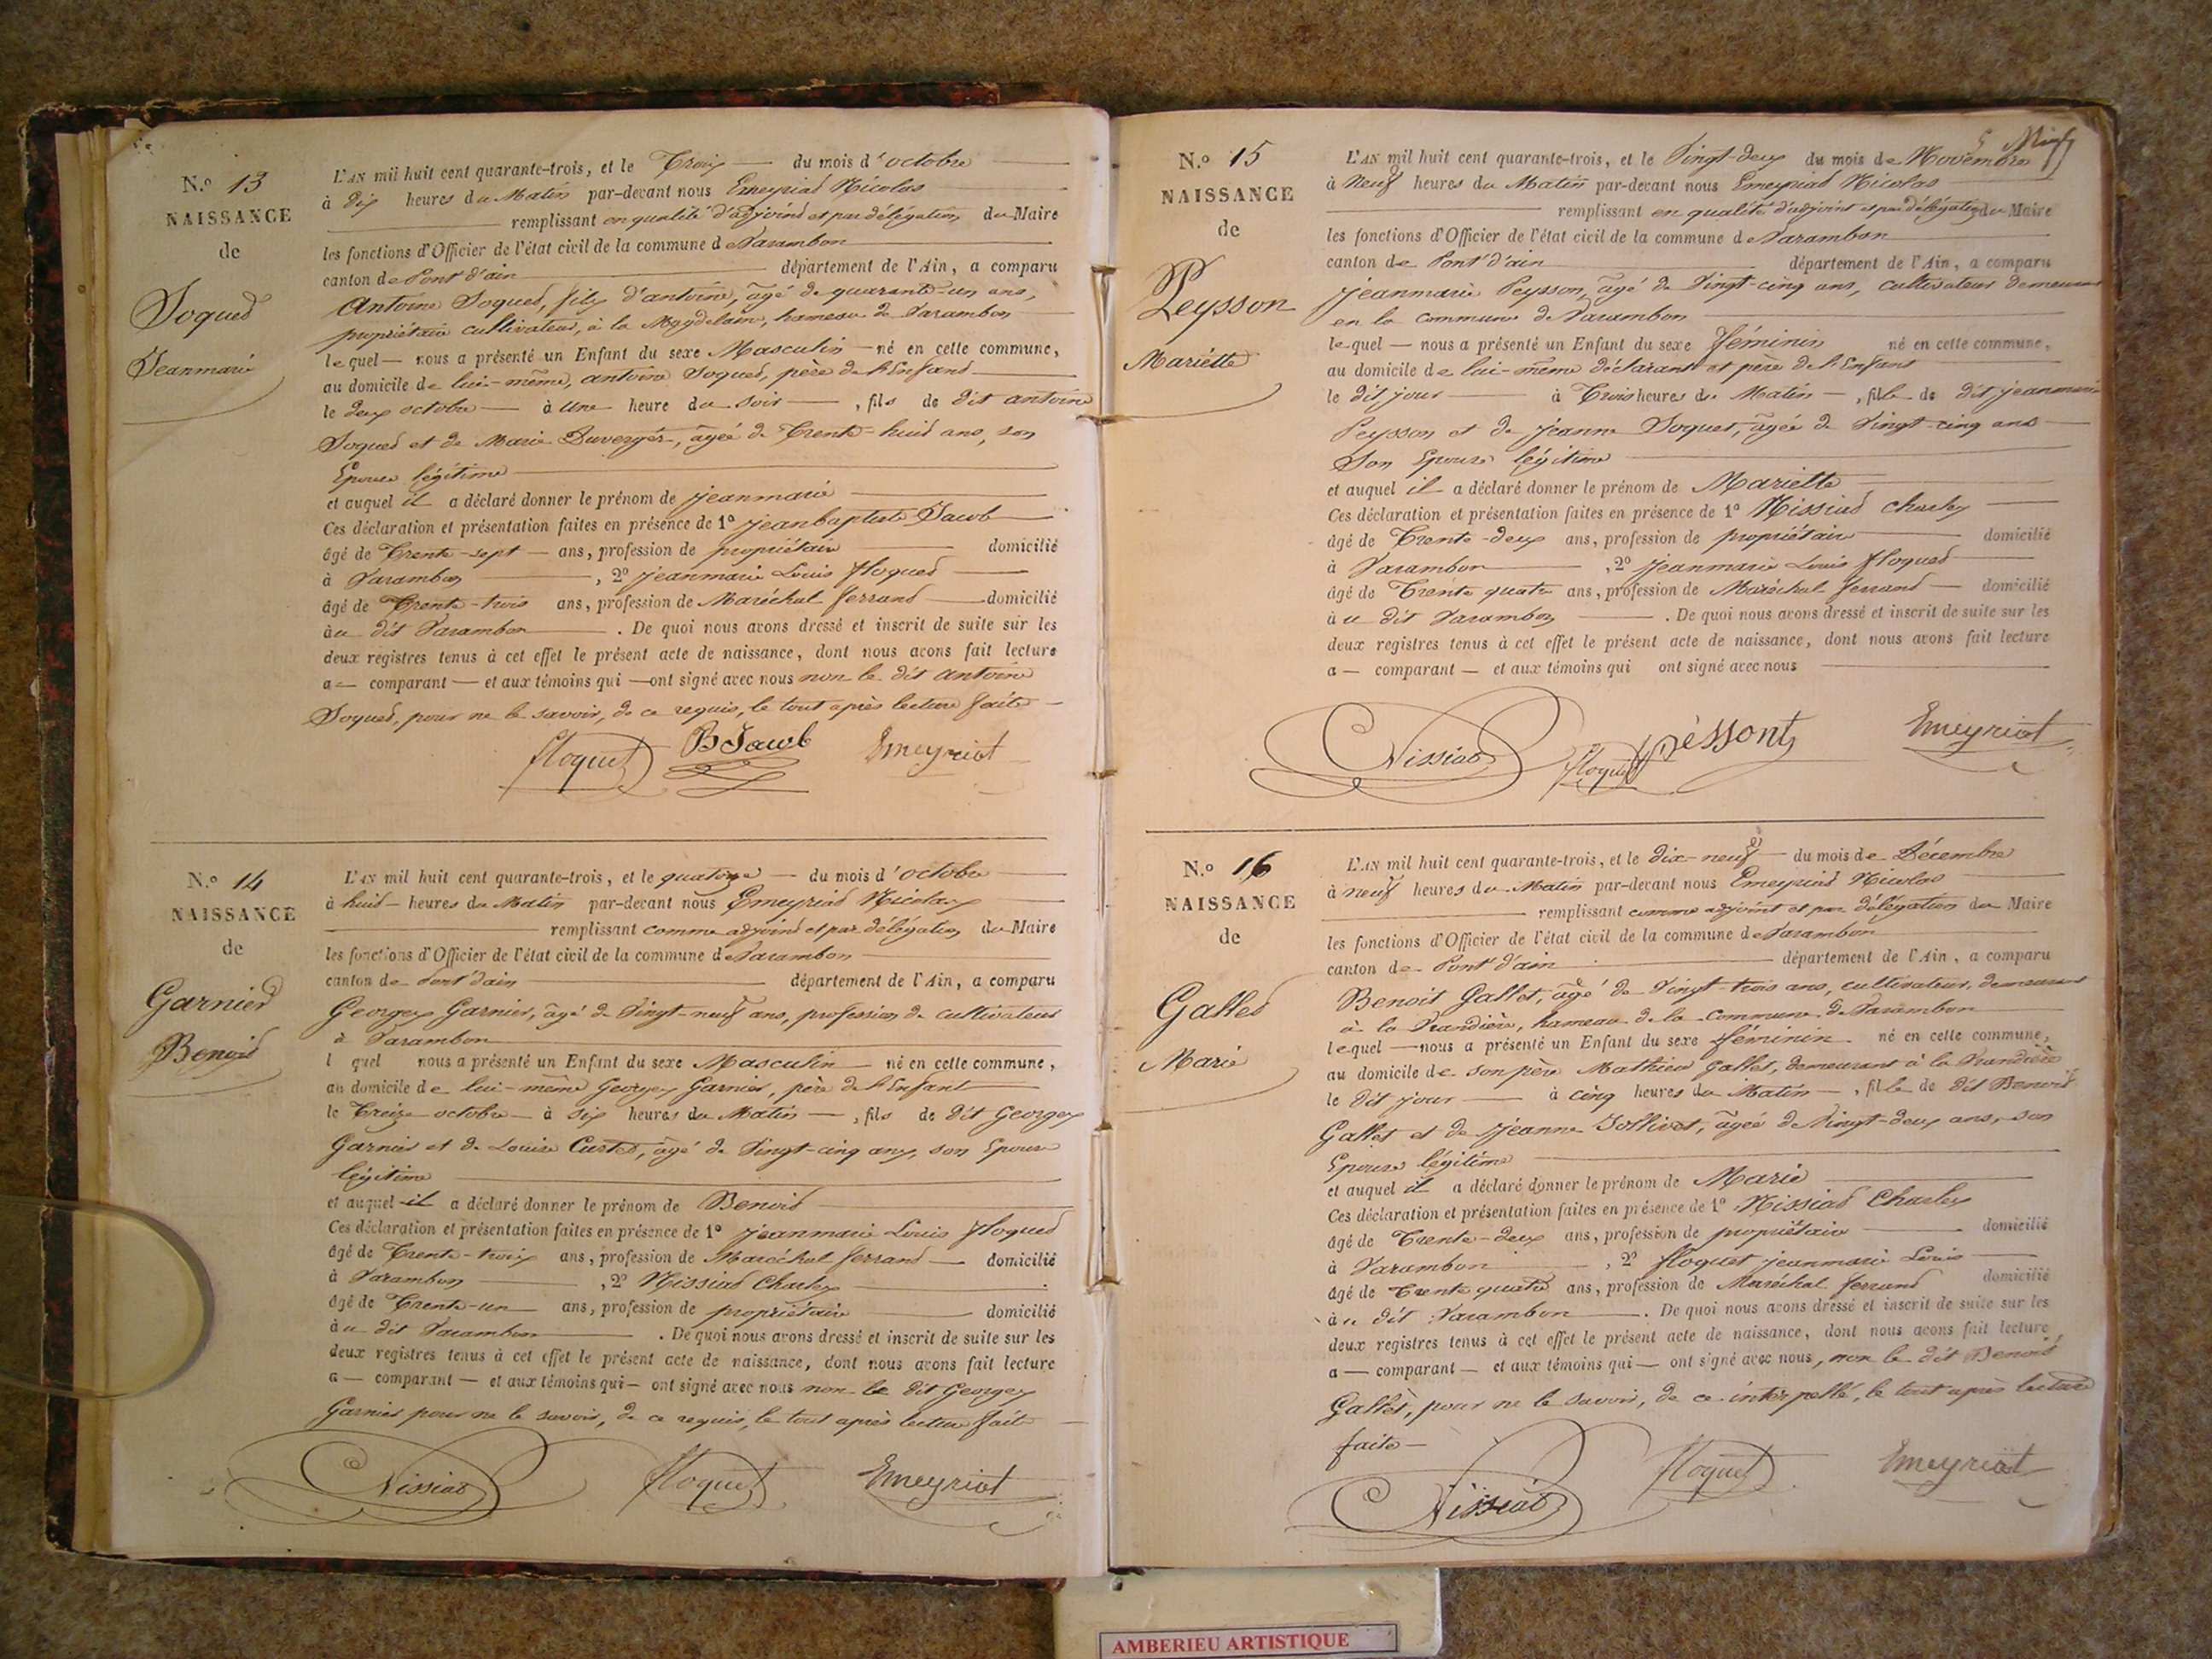 N.º 13
NAISSANCE
de
Soquet
Jeanmarie
L'AN mil huit cent quarante-trois, et le Trois du mois d'octobre
à dix heures du Matin par-devant nous Emeyriat Nicolas
remplissant en qualité d'adjoint et par délégation du Maire
les fonctions d'Officier de l'état civil de la commune de Varambon
canton de Pont d'ain département de l'Ain, a comparu
Antoine Soquet, fils d'antoine, âgé de quarante-un ans,
propriétaire cultivateur, à la Magdelaine, hameau de Varambon
lequel nous a présenté un Enfant du sexe Masculin né en cette commune,
au domicile de lui-même, antoine Soquet, père de l'Enfant
le deux octobre à une heure du soir, fils de dit antoine
Soquet et de Marie Duverger, âgée de Trente-huit ans, son
Epouse légitime
et auquel il a déclaré donner le prénom de jeanmarie
Ces déclaration et présentation faites en présence de 1º jeanbaptiste Jacob
âgé de Trente-sept ans, profession de propriétaire domicilié
à Varambon, 2º jeanmarie Louis floquet
âgé de Trente-trois ans, profession de Maréchal ferrant domicilié
au dit Varambon. De quoi nous avons dressé et inscrit de suite sur les
deux registres tenus à cet effet le présent acte de naissance, dont nous avons fait lecture
a comparant et aux témoins qui ont signé avec nous non le dit antoine
Soquet, pour ne le savoir, de ce requis, le tout après lecture faite
floquet BJacob Emeyriat
N.º 14
NAISSANCE
de
Garnier
Benoit
L'AN mil huit cent quarante-trois, et le quatorze du mois d'octobre
à huit heures du Matin par-devant nous Emeyriat Nicolas
remplissant comme adjoint et par délégation du Maire
les fonctions d'Officier de l'état civil de la commune de Varambon
canton de Pont d'ain département de l'Ain, a comparu
Georges Garnier, âgé de Vingt-neuf ans, profession de cultivateur
à Varambon
l quel nous a présenté un Enfant du sexe Masculin né en cette commune,
au domicile de lui-même Georges Garnier, père de l'Enfant
le Treize octobre à six heures du Matin, fils de dit Georges
Garnier et de Louise Curtet, âgé de Vingt-cinq ans, son Epouse
légitime
et auquel il a déclaré donner le prénom de Benoit
Ces déclaration et présentation faites en présence de 1º jeanmarie Louis floquet
âgé de Trente-trois ans, profession de Maréchal ferrant domicilié
à Varambon, 2º Nissiat Charles
âgé de Trente-un ans, profession de propriétaire domicilié
au dit Varambon. De quoi nous avons dressé et inscrit de suite sur les
deux registres tenus à cet effet le présent acte de naissance, dont nous avons fait lecture
a comparant et aux témoins qui ont signé avec nous non le dit Georges
Garnier pour ne le savoir, de ce requis, le tout après lecture faite
Nissiat floquet Emeyriat
N.º 15
NAISSANCE
de
Peysson
Mariette
L'AN mil huit cent quarante-trois, et le Vingt-deux du mois de Novembre
à Neuf heures du Matin par-devant nous Emeyriat Nicolas
remplissant en qualité d'adjoint et par délégation du Maire
les fonctions d'Officier de l'état civil de la commune de Varambon
canton de Pont d'ain département de l'Ain, a comparu
jeanmarie Peysson, âgé de Vingt-cinq ans, cultivateur demeurant
en la commune de Varambon
lequel nous a présenté un Enfant du sexe féminin né en cette commune,
au domicile de lui-même déclarant et père de l'Enfant
le dit jour à Trois heures du Matin, fille de dit jeanmarie
Peysson et de jeanne Soquet, âgée de Vingt-cinq ans
Son Epouse légitime
et auquel il a déclaré donner le prénom de Mariette
Ces déclaration et présentation faites en présence de 1º Nissiat Charles
âgé de Trente-deux ans, profession de propriétaire domicilié
à Varambon, 2º jeanmarie Louis floquet
âgé de Trente quatre ans, profession de Maréchal ferrant domicilié
au dit Varambon. De quoi nous avons dressé et inscrit de suite sur les
deux registres tenus à cet effet le présent acte de naissance, dont nous avons fait lecture
a comparant et aux témoins qui ont signé avec nous
Nissiat floquet pèssont Emeyriat
N.º 16
NAISSANCE
de
Gallet
Marie
L'AN mil huit cent quarante-trois, et le dix-neuf du mois de Décembre
à neuf heures du Matin par-devant nous Emeyriat Nicolas
remplissant comme adjoint et par délégation du Maire
les fonctions d'Officier de l'état civil de la commune de Varambon
canton de Pont d'ain département de l'Ain, a comparu
Benoit Gallet, âgé de Vingt-trois ans, cultivateur, demeurant
à la hameau de la Commune de Varambon
lequel nous a présenté un Enfant du sexe féminin né en cette commune,
au domicile de son père Mathieu Gallet, demeurant à la
le dit jour à cinq heures du Matin, fille de dit Benoit
Gallet et de jeanne Jollivet, âgée de Vingt-deux ans, son
Epouse légitime
et auquel il a déclaré donner le prénom de Marie
Ces déclaration et présentation faites en présence de 1º Nissiat Charles
âgé de Trente-deux ans, profession de propriétaire domicilié
à Varambon, 2º floquet jeanmarie Louis
âgé de Trente quatre ans, profession de Maréchal ferrant domicilié
au dit Varambon. De quoi nous avons dressé et inscrit de suite sur les
deux registres tenus à cet effet le présent acte de naissance, dont nous avons fait lecture,
a comparant et aux témoins qui ont signé avec nous, non le dit Benoit
Gallet, pour ne le savoir, de ce interpellé, le tout après lecture
faite
Nissiat floquet Emeyriat
AMBERIEU ARTISTIQUE